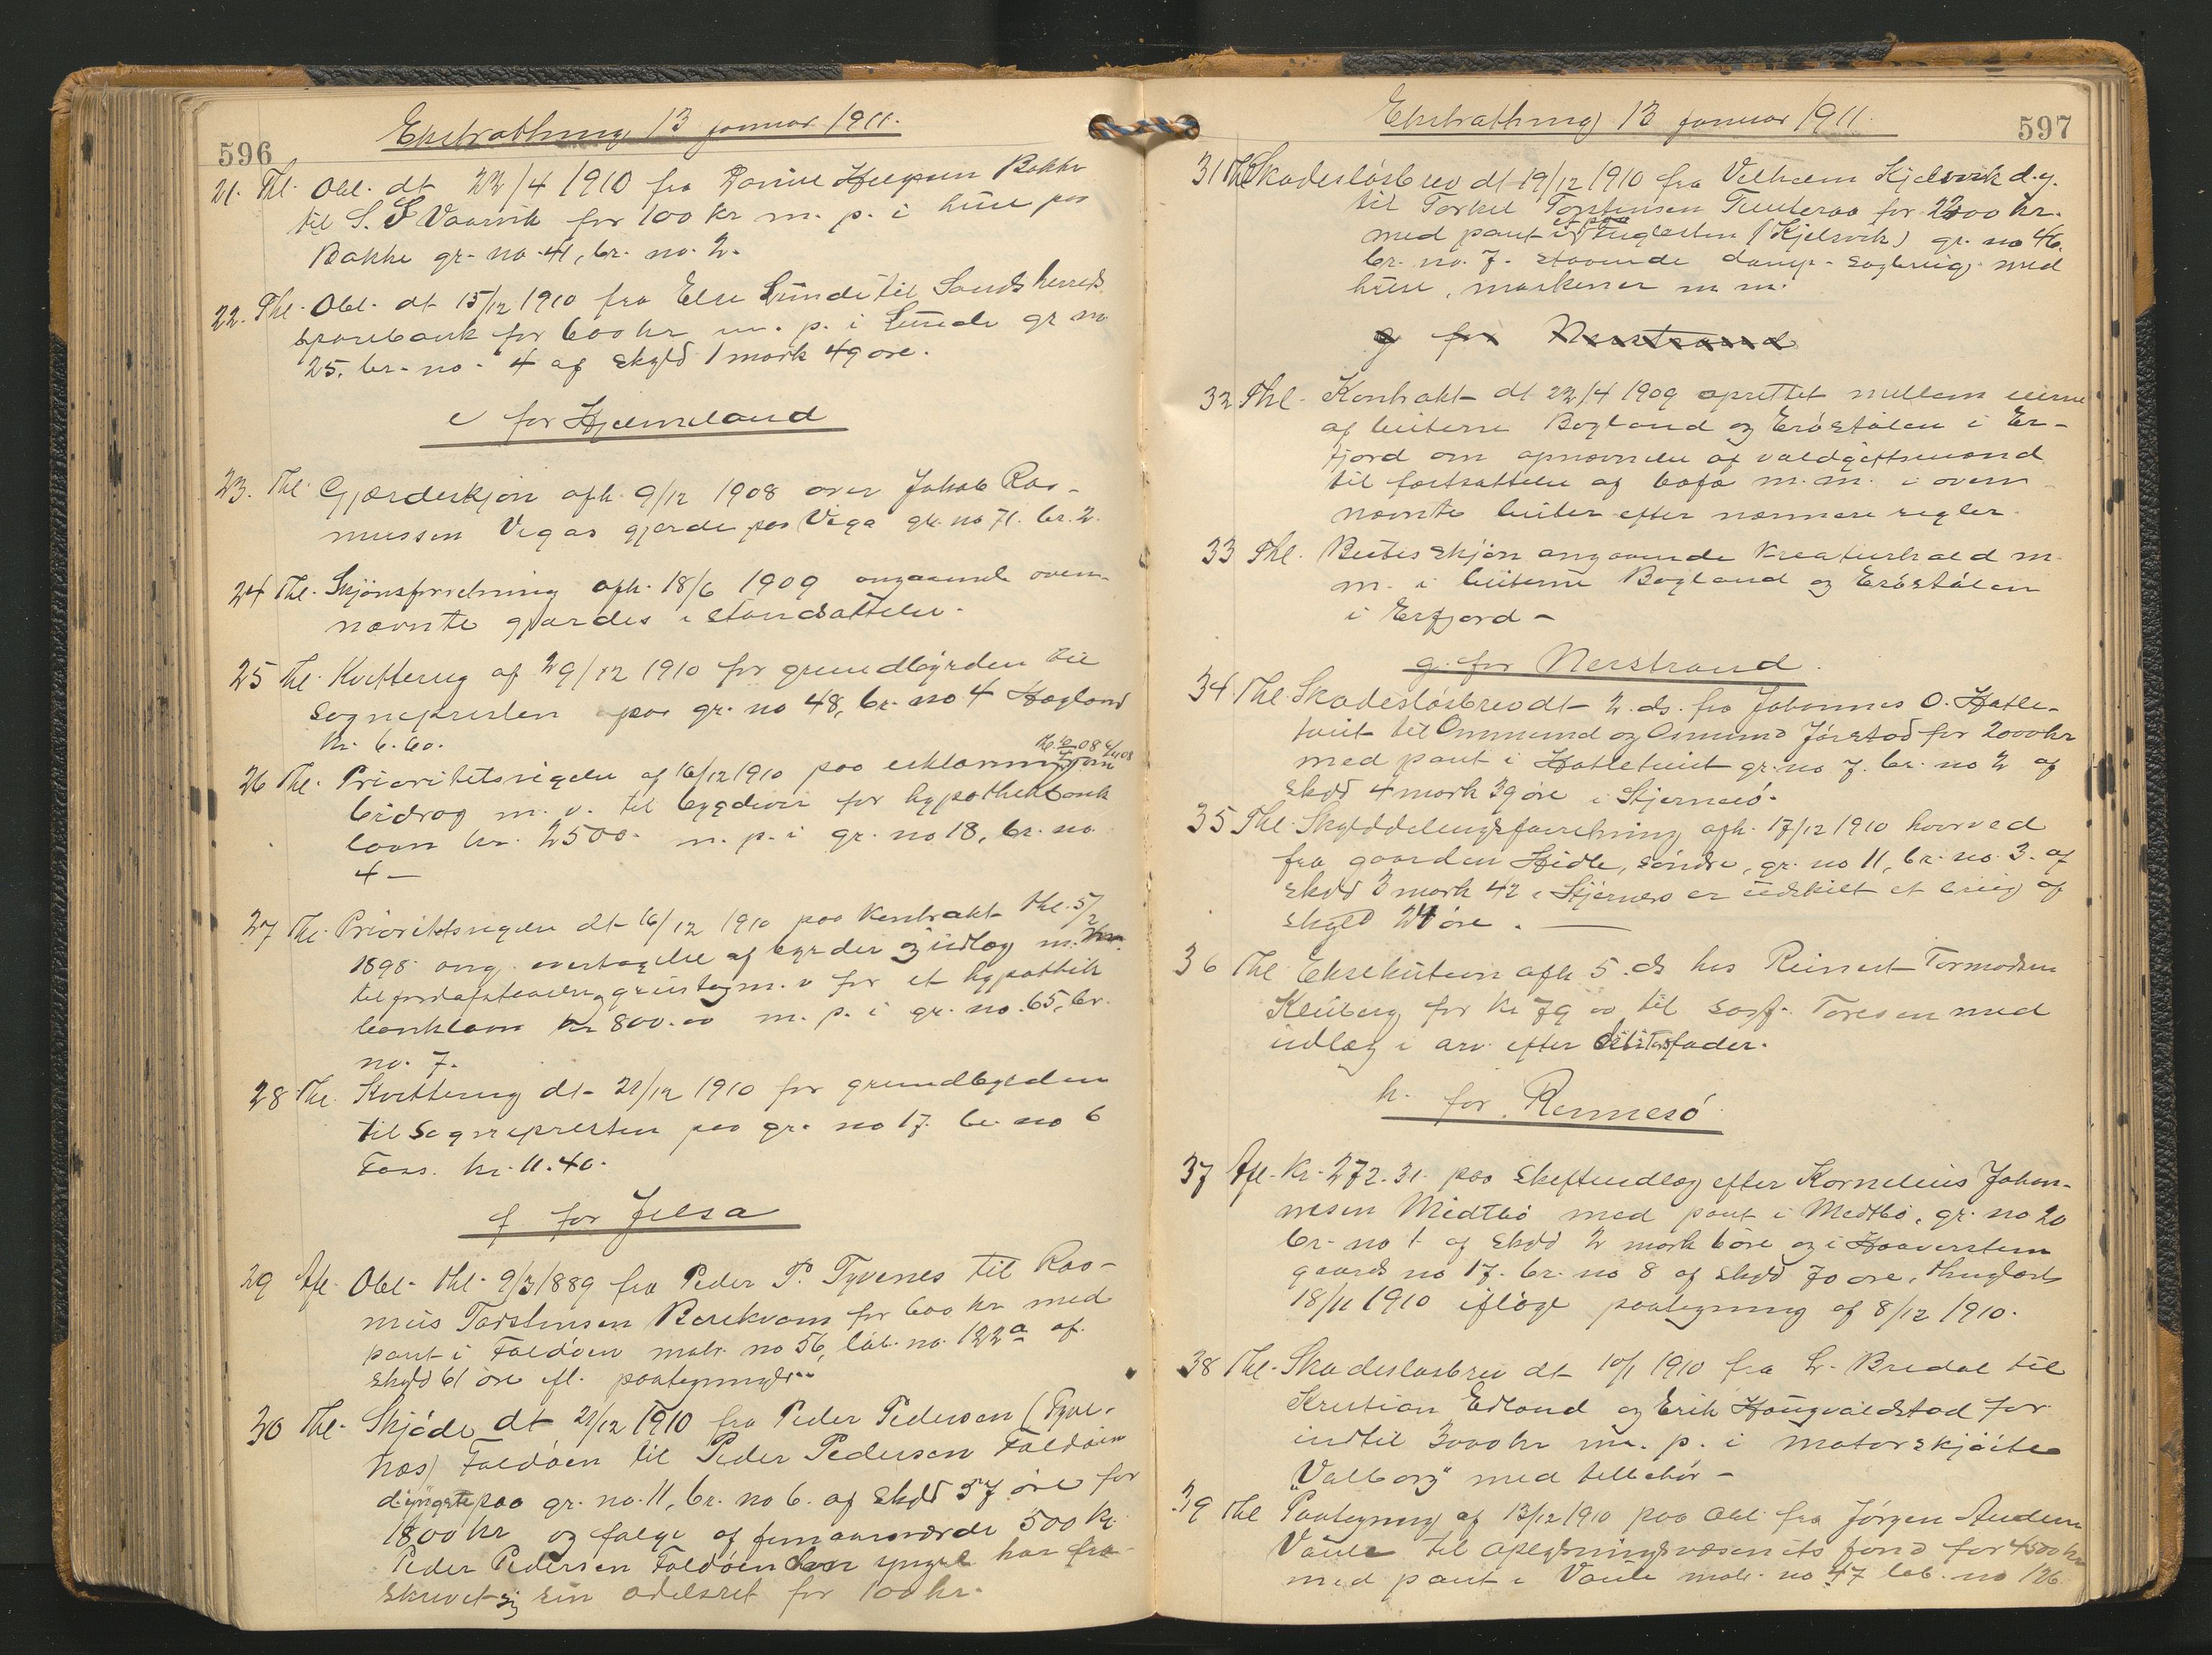 596
Ekstrathing 13 januar 1911.
21. Thl. Obl. dt 22/4 1910 fra Helgesen Bakke
til S. S Vaarvik for 100 kr m. p. i huse paa
Bakke gr. no. 41, br. no. 2.
22. Thl. Obl. dt 15/12 1910 fra Else Lunde til Sands herreds
sparebank for 600 kr m. p. i Lunde gr no
25. br. no. 4 af skyld 1 mark 49 øre.
e for Hjelmeland
23. Thl. Gjærdeskjøn afh. 9/12 1908 over Jakob Ras-
mussen Vigas gjærde paa Viga gr. no 71. br. 2.
24 Thl. Skjønsforretning afh. 18/6 1909 angaaende oven-
nævnte gjærdes istandsættelse.
25 Thl. Kvittering af 29/12 1910 for grundbyrden til
Sognepresten paa gr. no 48, br. no 4 Hagland
kr. 6.60.
26 Thl. Prioritetsvigelse af 16/12 1910 paa erklæring om
bidrag m. v. til bygdevei for hypothekbank
laan kr. 2500. m. p. i gr. no 18, br. no.
4 –
27 Thl. Prioritetsvigelse dt 16/12 1910 paa kontrakt thl. 5/2
1898 ang. overtagelse af byrder og indlæg m.
til jordafstaaelse, grustag m. v for et hypothek
banklaan kr 800.00 m. p. i gr. no. 65, br.
no. 7.
28 Thl. Kvittering dt 21/12 1910 for grundbyrden
til Sognepresten paa gr. no 17. br. no 6
Foss. kr. 11.40.
f for Jelsa
29 Afl. Obl. thl. 9/3 1889 fra Peder P. Tyvenes til Ras-
mus Torstensen Barekvam for 600 kr med
pant i Foldøen matr. no 56, løb. no. 122a af
skyld 61 øre ifl. paategninger
30 Thl. Skjøde dt 21/12 1910 fra Peder Pedersen (Tyve-
næs) Foldøen til Peder Pedersen Foldøen
d. yngste paa gr. no. 11, br. no 6. af skyld 57 øre for
1800 kr og følge af femaarsværde 500 kr.
Peder Pedersen Foldøen den yngre har fra-
skrevet sig sin odelsret for 100 kr.
597
Ekstrathing 13 januar 1911.
31 Thl. Skadesløsbrev dt 19/12 1910 fra Vilhelm Kjelsvik d.y.
til Torkel Torstensen Tunteraa for 2200 kr.
med pant i et paa Fuglesten (Kjelsvik) gr. no 46.
br. no. 7. staaende damp-sagbrug med
huse, maskiner m m.
g for Nerstrand
32 Thl. Kontrakt dt 22/4 1909 oprettet mellem eierne
af beiterne Bogland og Erøstølen i Er-
fjord om opnævnelse af voldgiftsmænd
til fastsættelse af bofø m. m. i oven-
nævnte beiter efter nærmere regler.
33 Thl. Beitesskjøn angaaende kreaturhold m.
m. i beiterne Bogland og Erøstølen
i Erfjord –
g. for Nerstrand.
34 Thl. Skadesløsbrev dt 2. ds. fra Johannes O. Hatle-
tveit til Ommund og Osmund Jørstad for 2000 kr
med pant i Hatletveit gr. no 7. br. no 2 af
skyld 4 mark 39 øre i Stjernerø.
35 Thl. Skylddelingsforretning afh. 17/12 1910 hvorved
fra gaarden Hidle, søndre, gr. no 11, br. no. 3. af
skyld 3 mark 42 i Stjernerø er udskilt et brug af
skyld 24 øre.
36 Thl. Eksekution afh. 5. ds hos Reinert Tormodsen
Kleiberg for kr 79 00 til sagf. Toresen med
udlæg i arv efter debitors fader.
h. for Rennesø.
37 Afl. Kr. 272.31 paa skifteudlæg efter Kornelius Johan-
nesen Midtbø med pant i Midtbø, gr. no 20
br. no 1. af skyld 2 mark 6 øre og i Haaversteen
gaards no 17. br. no 8 af skyld 70 øre, thinglæst
18/11 1910 ifølge paategning af 8/12 1910.
38 Thl. Skadesløsbrev dt 10/1 1910 fra L. Bredal til
Kristian Edland og Erik Haugvaldstad for
indtil 3000 kr m. p. i motorskjøite
"Valborg" med tilbehør –
39 Thl Paategning af 13/12 1910 paa obl. fra Jørgen Andersen
Vaule til oplysningsvæsenets fond for 4500 kr
med pant i Vaule matr. no 47 løb. no 126